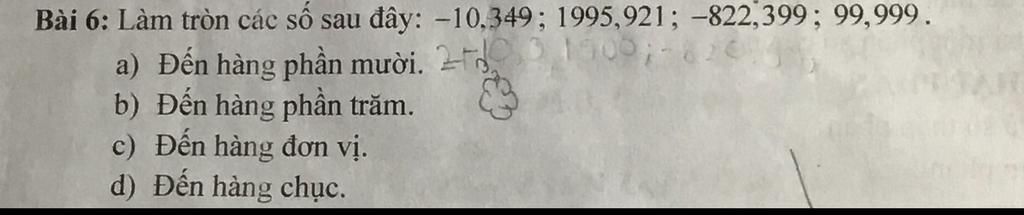 Bài 6: Làm tròn các số sau đây: −10,349 ; 1995,921 ; −822,399 ; 99,999 .
a) Đến hàng phần mười.
b) Đến hàng phần trăm.
c) Đến hàng đơn vị.
d) Đến hàng chục.